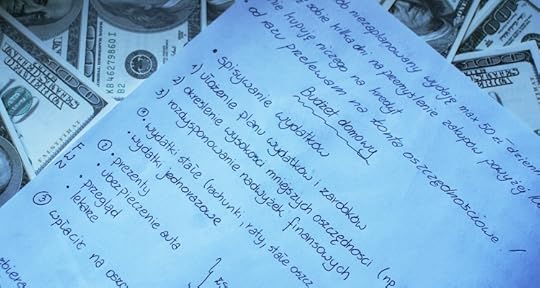 niezaplanowany wydaję max 50 zł dzienn
sobie kilka dni na przemyślenie zakupów powyżej
nie kupuję niczego na kredyt
od razu przelewam na konta oszczędnościowe !
Budżet domowy
• spisywanie wydatków
1) ułożenie planu wydatków i zarobków
2) określenie wysokości mniejszych oszczędności (np
3) rozdysponowanie nadwyżek finansowych
wydatki stałe (rachunki, raty, stałe oszcz
wydatki jednorazowe
• prezenty
• ubezpieczenie auta
• przegląd
• lekarz
③ wpłacić na oszcz
KB46279860 I